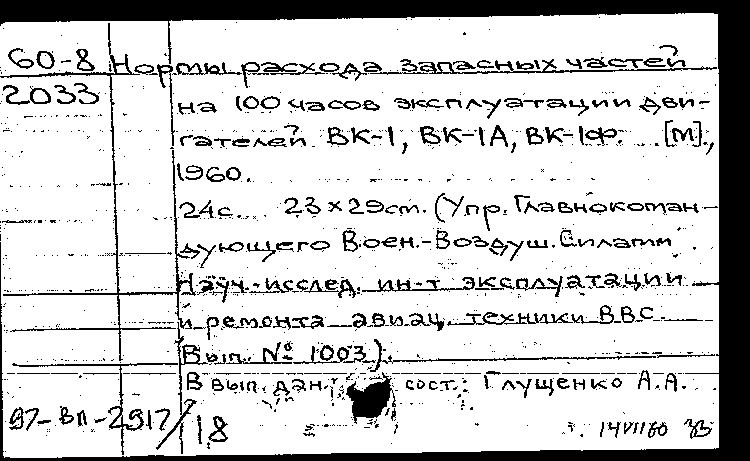 60-8 Нормы расхода запасных частей
2033 на 100 часов эксплуатации дви-
гателей ВК-1, ВК-1А, ВК-1Ф. [М].,
1960.
24с. 23×29см. (Упр. Главнокоман-
дующего Воен.-Воздуш. Силами.
Науч.-исслед. ин-т эксплуатации
и ремонта авиац. техники ВВС.
Вып. № 1003).
В вып. дан. сост.: Глущенко А.А.
97-вп-2917/18
14VII60